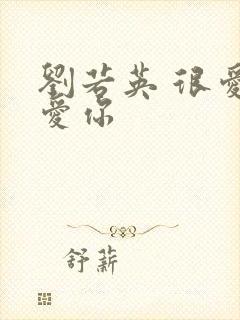 劉若英 很愛
愛你
舒薪